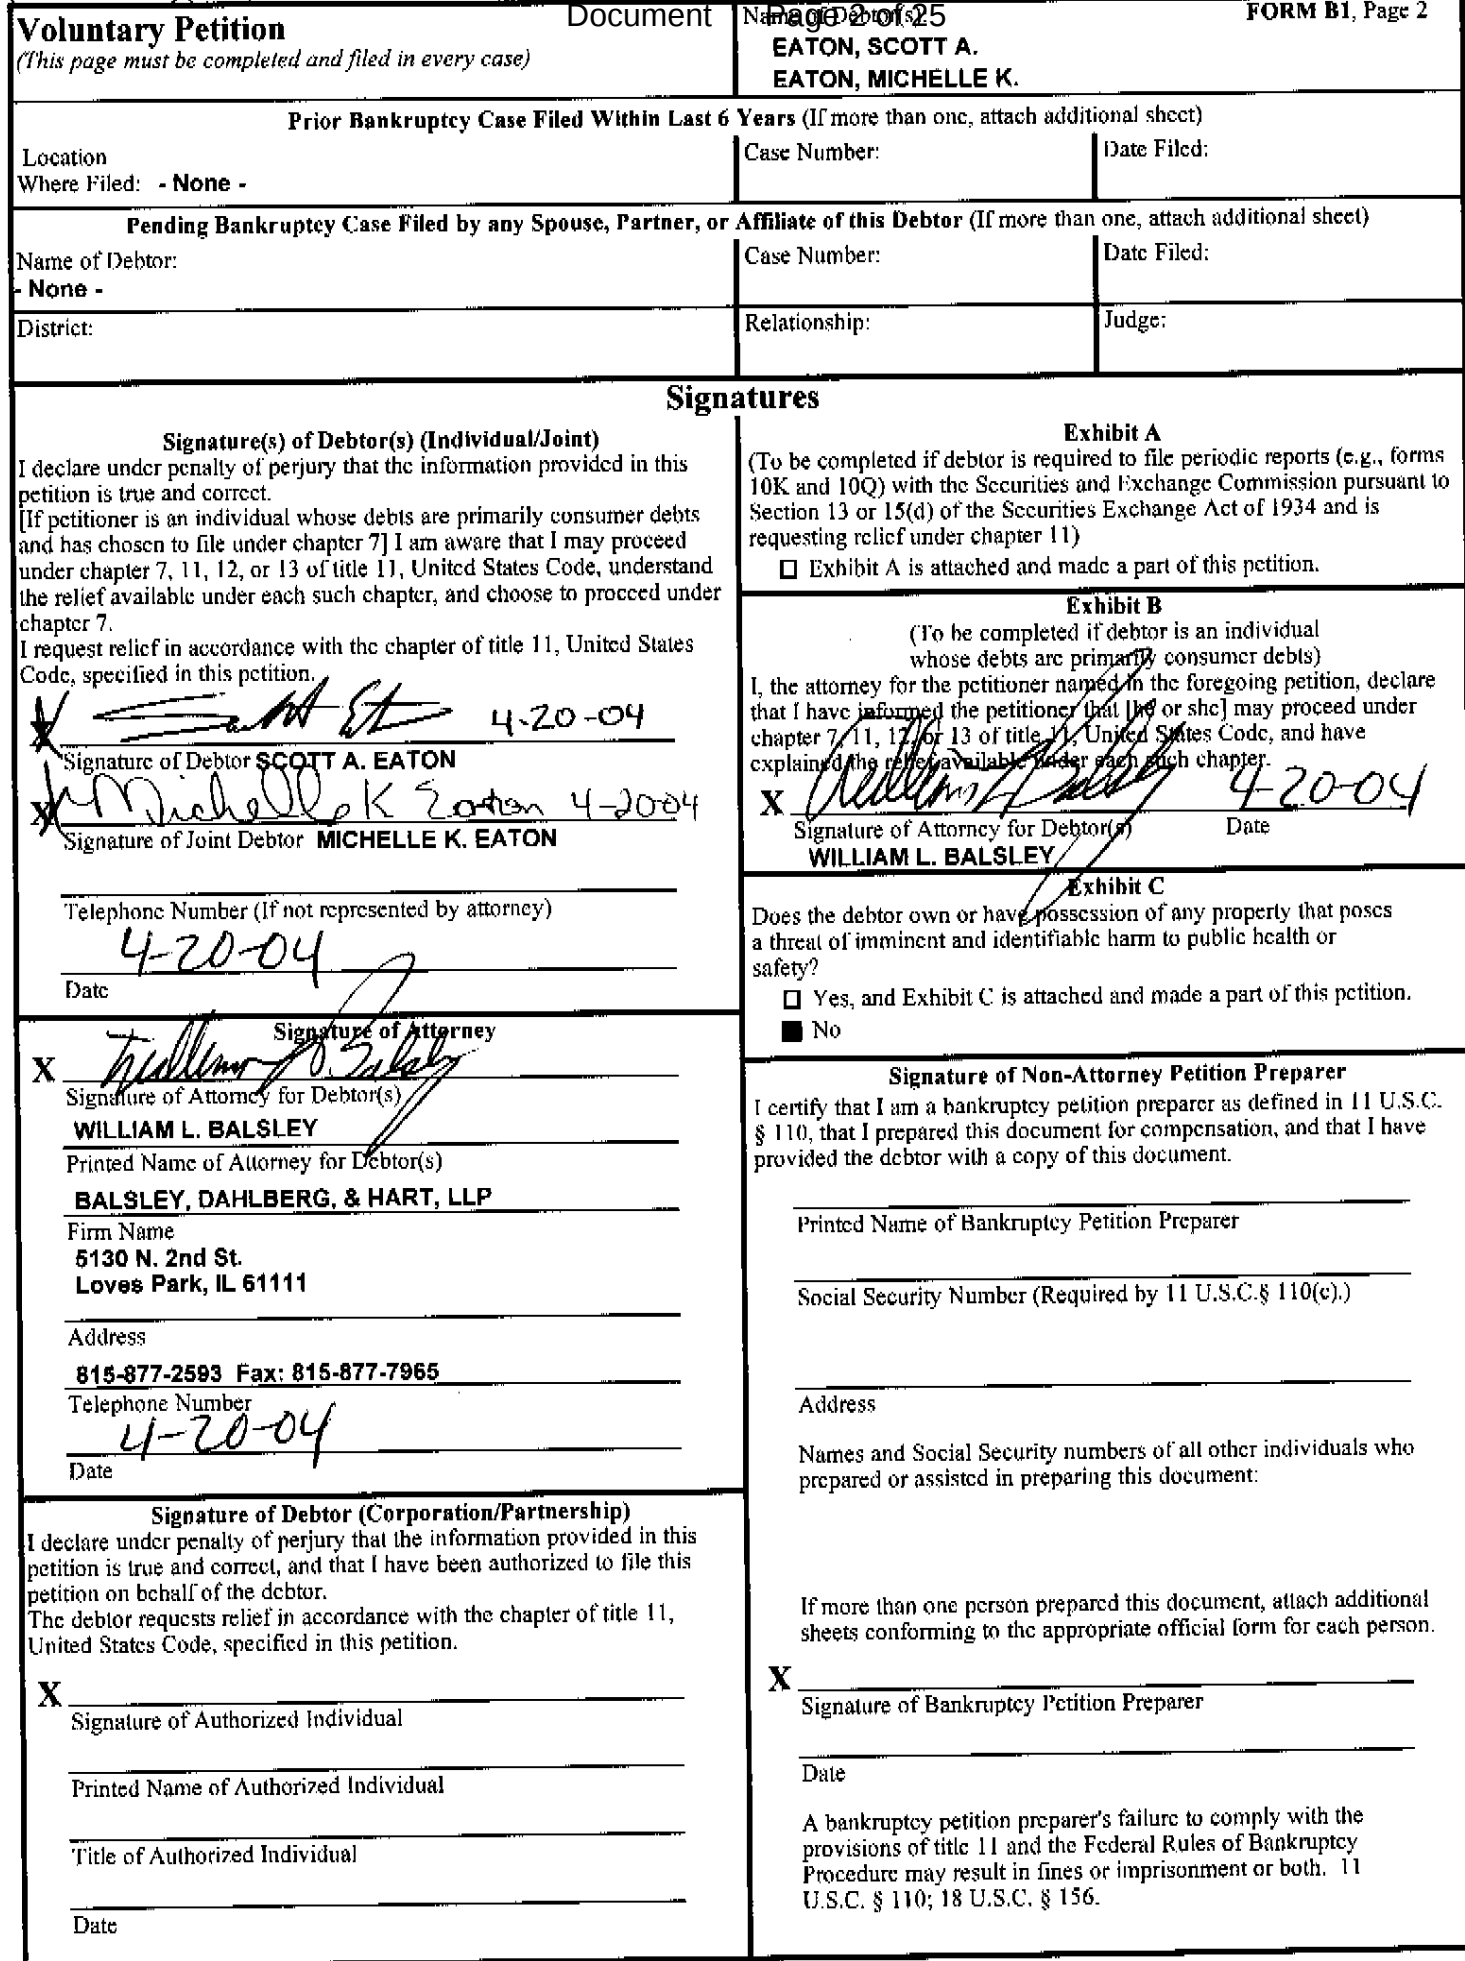 Document Page 2 of 25
Voluntary Petition
(This page must be completed and filed in every case)
Name of Debtor(s):
FORM B1, Page 2
EATON, SCOTT A.
EATON, MICHELLE K.
Prior Bankruptcy Case Filed Within Last 6 Years (If more than one, attach additional sheet)
Location
Where Filed: - None -
Case Number:
Date Filed:
Pending Bankruptcy Case Filed by any Spouse, Partner, or Affiliate of this Debtor (If more than one, attach additional sheet)
Name of Debtor:
- None -
Case Number:
Date Filed:
District:
Relationship:
Judge:
Signatures
Signature(s) of Debtor(s) (Individual/Joint)
I declare under penalty of perjury that the information provided in this
petition is true and correct.
[If petitioner is an individual whose debts are primarily consumer debts
and has chosen to file under chapter 7] I am aware that I may proceed
under chapter 7, 11, 12, or 13 of title 11, United States Code, understand
the relief available under each such chapter, and choose to proceed under
chapter 7.
I request relief in accordance with the chapter of title 11, United States
Code, specified in this petition.
X Scott Eaton 4-20-04
Signature of Debtor SCOTT A. EATON
X Michelle K Eaton 4-20-04
Signature of Joint Debtor MICHELLE K. EATON
Telephone Number (If not represented by attorney)
4-20-04
Date
Signature of Attorney
X William L. Balsley
Signature of Attorney for Debtor(s)
WILLIAM L. BALSLEY
Printed Name of Attorney for Debtor(s)
BALSLEY, DAHLBERG, & HART, LLP
Firm Name
5130 N. 2nd St.
Loves Park, IL 61111
Address
815-877-2593 Fax: 815-877-7965
Telephone Number
4-20-04
Date
Signature of Debtor (Corporation/Partnership)
I declare under penalty of perjury that the information provided in this
petition is true and correct, and that I have been authorized to file this
petition on behalf of the debtor.
The debtor requests relief in accordance with the chapter of title 11,
United States Code, specified in this petition.
X
Signature of Authorized Individual
Printed Name of Authorized Individual
Title of Authorized Individual
Date
Exhibit A
(To be completed if debtor is required to file periodic reports (e.g., forms
10K and 10Q) with the Securities and Exchange Commission pursuant to
Section 13 or 15(d) of the Securities Exchange Act of 1934 and is
requesting relief under chapter 11)
☐ Exhibit A is attached and made a part of this petition.
Exhibit B
(To be completed if debtor is an individual
whose debts are primarily consumer debts)
I, the attorney for the petitioner named in the foregoing petition, declare
that I have informed the petitioner that [he or she] may proceed under
chapter 7, 11, 12, or 13 of title 11, United States Code, and have
explained the relief available under each such chapter.
X William L. Balsley 4-20-04
Signature of Attorney for Debtor(s) Date
WILLIAM L. BALSLEY
Exhibit C
Does the debtor own or have possession of any property that poses
a threat of imminent and identifiable harm to public health or
safety?
☐ Yes, and Exhibit C is attached and made a part of this petition.
■ No
Signature of Non-Attorney Petition Preparer
I certify that I am a bankruptcy petition preparer as defined in 11 U.S.C.
§ 110, that I prepared this document for compensation, and that I have
provided the debtor with a copy of this document.
Printed Name of Bankruptcy Petition Preparer
Social Security Number (Required by 11 U.S.C.§ 110(c).)
Address
Names and Social Security numbers of all other individuals who
prepared or assisted in preparing this document:
If more than one person prepared this document, attach additional
sheets conforming to the appropriate official form for each person.
X
Signature of Bankruptcy Petition Preparer
Date
A bankruptcy petition preparer's failure to comply with the
provisions of title 11 and the Federal Rules of Bankruptcy
Procedure may result in fines or imprisonment or both. 11
U.S.C. § 110; 18 U.S.C. § 156.